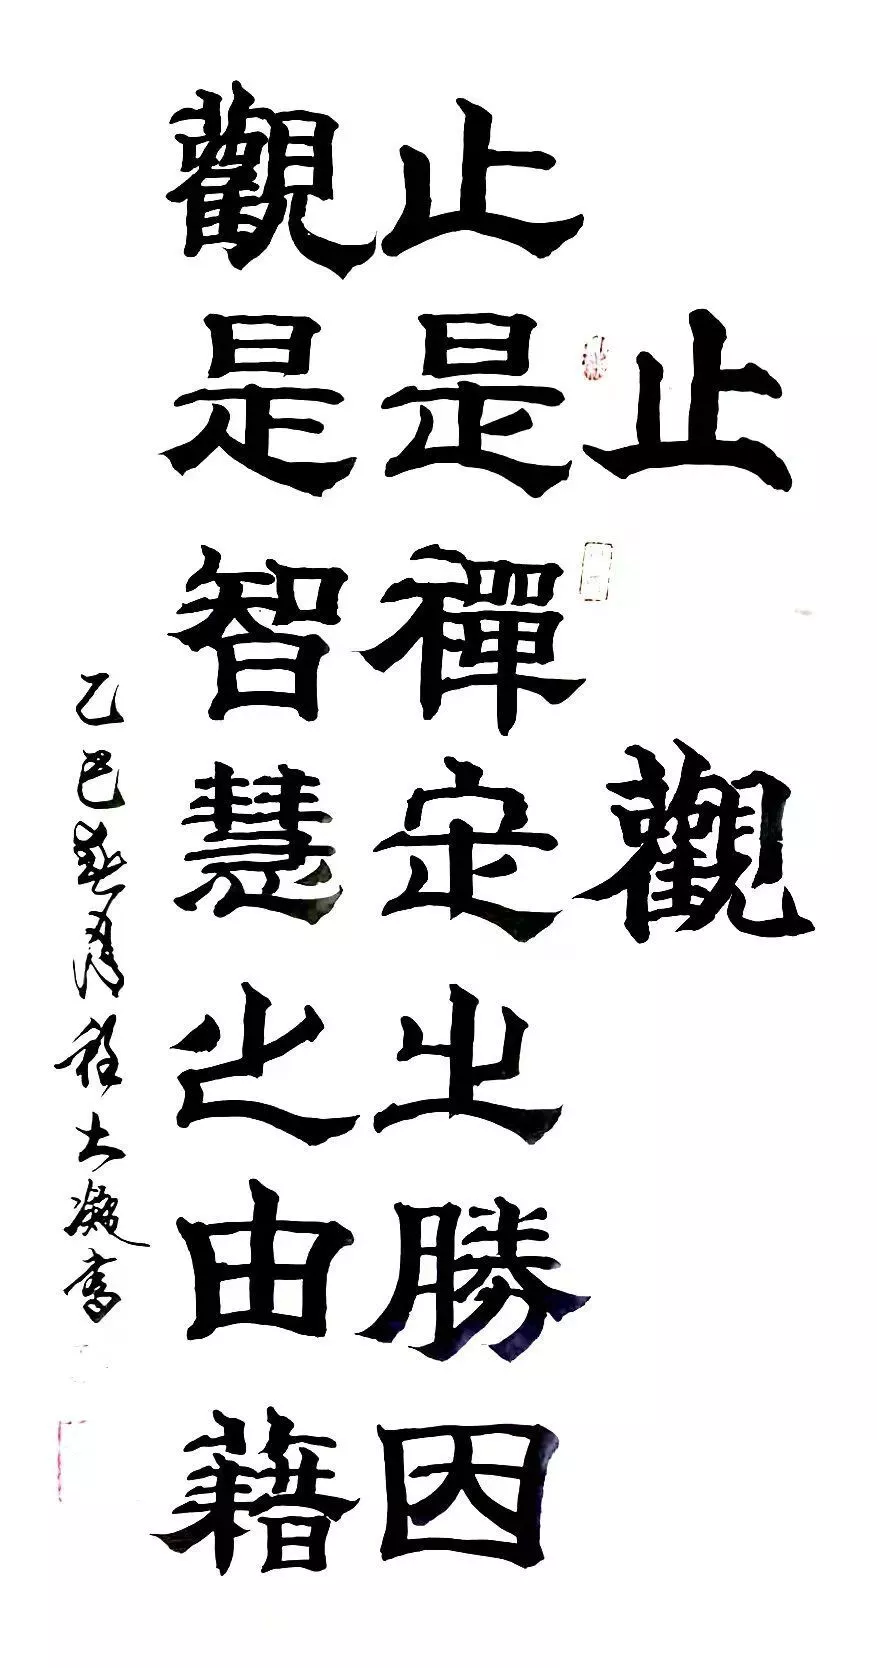 止觀
止是禪定之勝因
觀是智慧之由藉
乙巳春月程大凝書